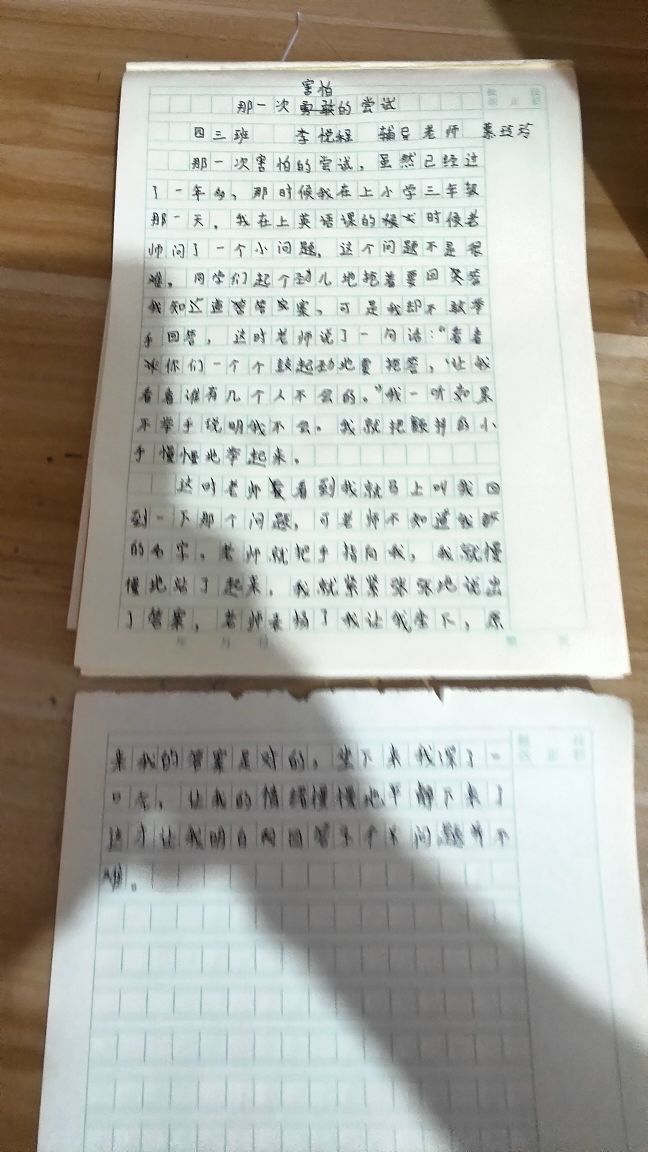 害怕
那一次勇敢的尝试
四三班 李悦程 辅导老师 蔡玲玲
那一次害怕的尝试，虽然已经过
了一年多，那时候我在上小学三年级
那一天，我在上英语课的候时候老
师问了一个小问题，这个问题不是很
难，同学们起个劲儿地抢着要回答
我知道答案，可是我却不敢举
手回答，这时老师说了一句话：“看看
你们一个个鼓起劲地要抢答，让我
看看谁有几个人不会的。”我一听如果
不举手说明我不会。我就把颤抖的小
手慢慢地举起来。
这时老师看到我就马上叫我回
到一下那个问题，可老师不知道我
的名字，老师就把手指向我，我就慢
慢地站了起来，我就紧紧张张地说出
了答案，老师表扬了我让我坐下，原
来我的答案是对的，坐下来我深了一
口气，让我的情绪慢慢地平静下来了
这才让我明白回答问题并不
难。